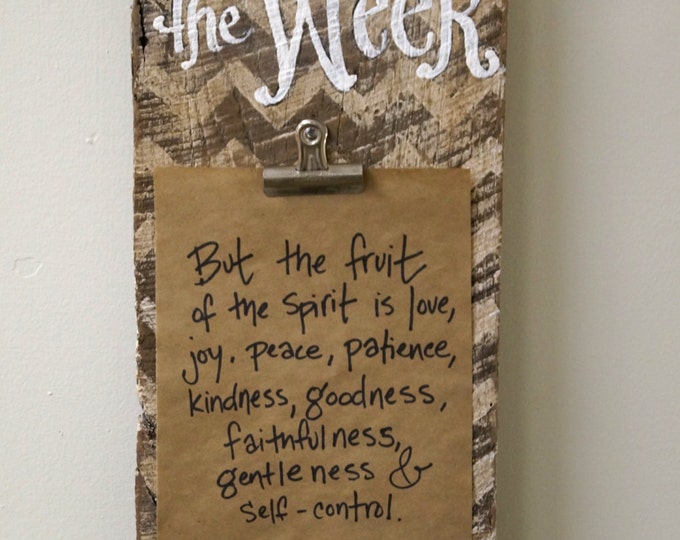 the Week
But the fruit
of the spirit is love,
joy. peace, patience,
kindness, goodness,
faithfulness,
gentleness &
self-control.